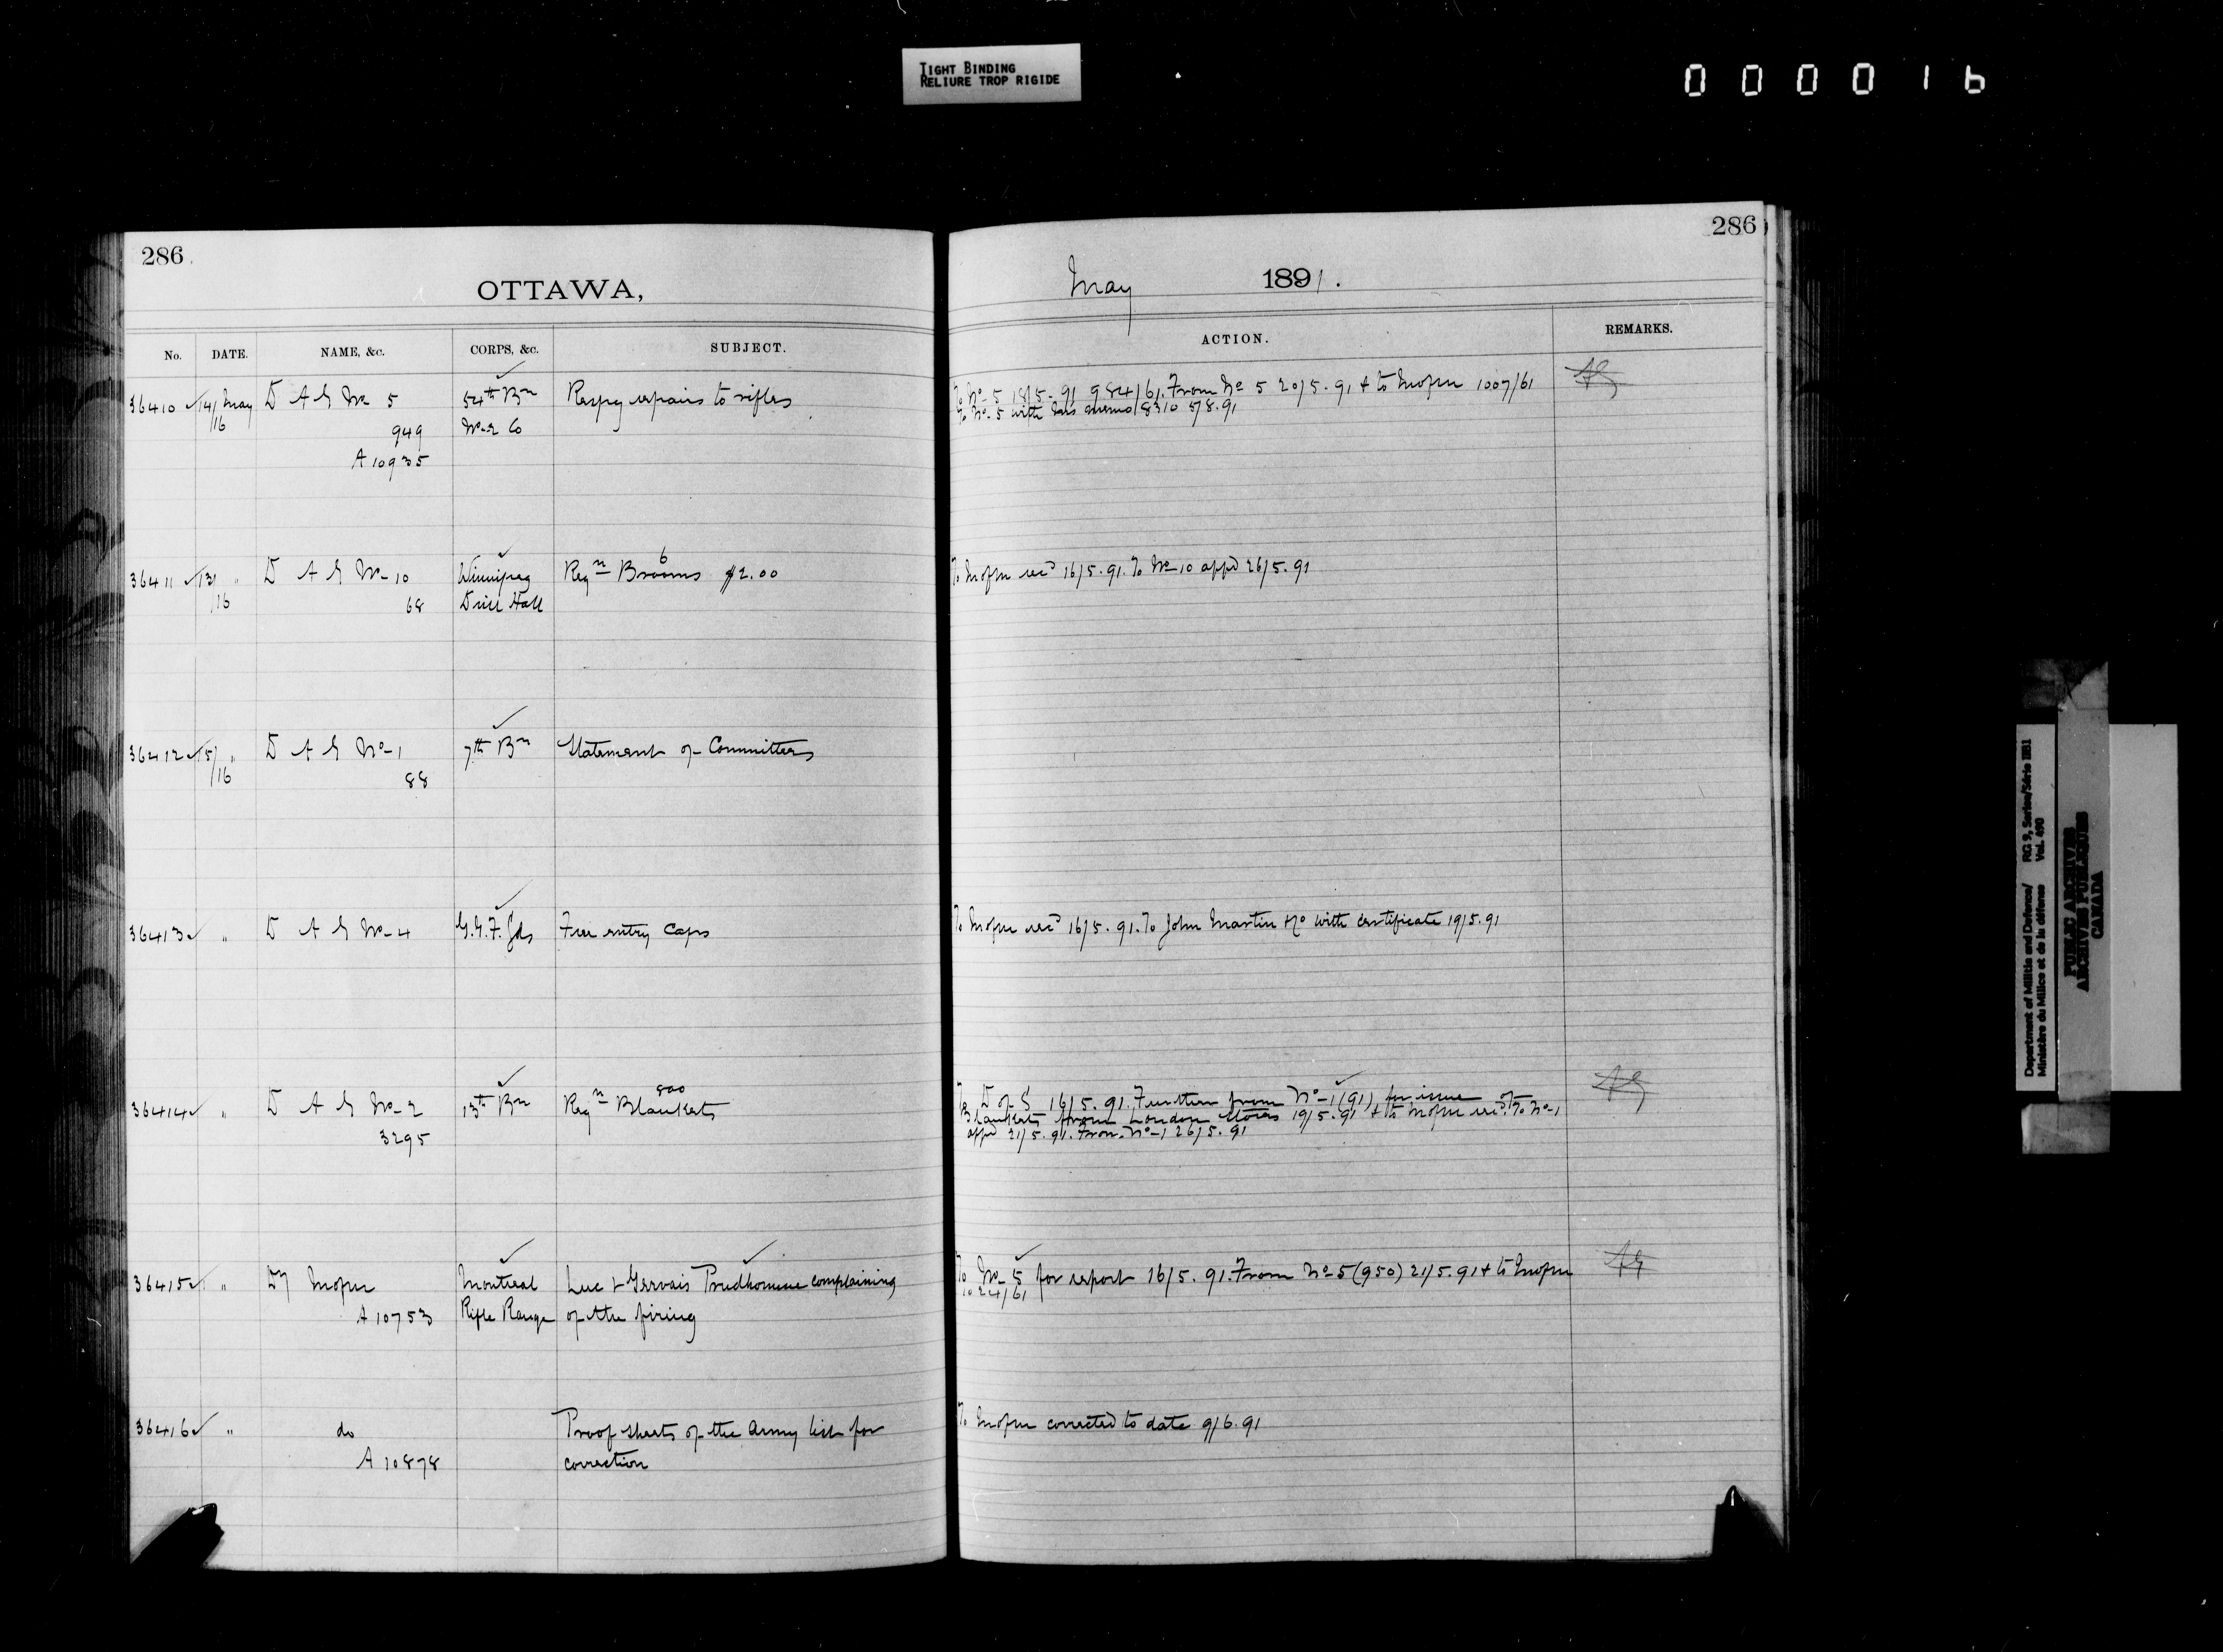 TIGHT BINDING
RELIURE TROP RIGIDE
000016
286
OTTAWA,
No. DATE. NAME, &c. CORPS, &c. SUBJECT.
36410 14/ May D A G No 5 54th Bn Respg repairs to rifles
/16 949 No 2 Co
A 10935
36411 13/ " D A G No 10 Winnipeg Reqn 6 Brooms $2.00
/16 68 Drill Hall
36412 15/ " D A G No 1 7th Bn Statement of Committees
/16 88
36413 " D A G No 4 G.G.F. Gds Free entry Caps
36414 " D A G No 2 13th Bn Reqn 800 Blankets
3295
36415 " Montreal Luc & Gervais Prudhomme complaining
A 10753 Rifle Range of the firing
36416 " do Proof sheets of the Army list for
A 10878 correction
286
May 1891.
ACTION. REMARKS.
To No 5 18/5.91 984/61. From No 5 20/5.91 & to 1007/61
To No 5 with memo 8310 5/8.91
To recd 16/5.91. To No 10 appd 26/5.91
To recd 16/5.91. To John Martin & Co with certificate 19/5.91
To D of S 16/5.91. Further from No 1 (91) for issue of
Blankets from London Stores 19/5.91 & to recd. To No 1
appd 21/5.91. From No 1 26/5.91
To No 5 for report 16/5.91. From No 5 (950) 21/5.91 & to
1024/61
To corrected to date 9/6.91
Department of Militia and Defence/ RG 9, Series/Série IIB1
Ministère du Milice et de la défense Vol. 690
PUBLIC ARCHIVES
ARCHIVES PUBLIQUES
CANADA